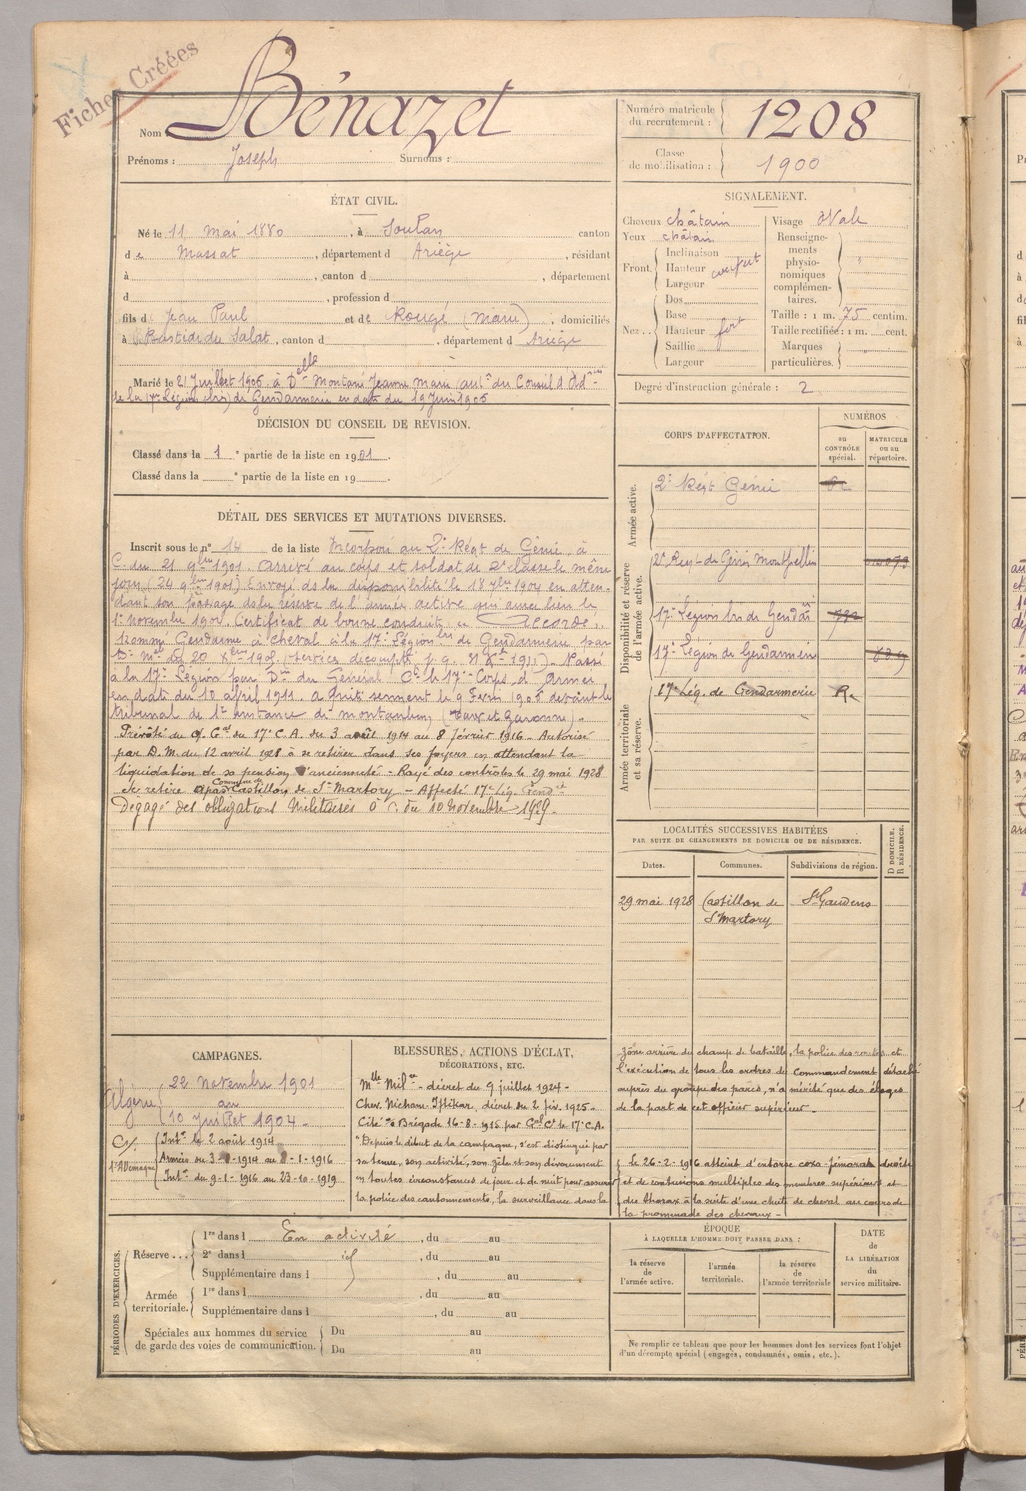 Fiches Créées
Nom Bénazet
Prénoms : Joseph Surnoms :
Numéro matricule du recrutement : 1208
Classe de mobilisation : 1900
ÉTAT CIVIL.
Né le 11 mai 1880, à Soulan canton
de Massat, département d Ariège, résidant
à , canton d , département
d , profession d
fils de Jean Paul et de Rougé (Marie), domiciliés
à Bastide du Salat, canton d , département d Ariège
Marié le 21 Juillet 1906, à Delle Montané Jeanne Marie (aut. du Conseil d'Adon
de la 17e Légion bis) de Gendarmerie en date du 19 Juin 1906
SIGNALEMENT.
Cheveux châtain
Yeux châtain
Front Inclinaison
Hauteur
Largeur
Nez Dos
Base
Hauteur fort
Saillie
Largeur
Visage Ovale
Renseignements physionomiques complémentaires.
Taille : 1 m. 75 centim.
Taille rectifiée : 1 m. cent.
Marques particulières.
Degré d'instruction générale : 2
DÉCISION DU CONSEIL DE RÉVISION.
Classé dans la 1e partie de la liste en 1901.
Classé dans la e partie de la liste en 19 .
DÉTAIL DES SERVICES ET MUTATIONS DIVERSES.
Inscrit sous le n° 14 de la liste Incorporé au 2e Régt de Génie, à
C. du 21 9bre 1901. Arrivé au corps et soldat de 2e classe le même
jour (24 9bre 1901) Envoyé ds la disponibilité le 18 7bre 1904 en atten-
dant son passage ds la réserve de l'armée active qui aura lieu le
1er novembre 1904. Certificat de bonne conduite " Accordé "
Nommé Gendarme à cheval à la 17e Légion bis de Gendarmerie par
Passé
à la 17e Légion par Don du Général Ct le 17e Corps d'Armée
en date du 10 avril 1911. A prêté serment le 9 Févri 1905 devant le
tribunal de 1re instance de Montauban (Tarn et Garonne).
Prévôté du Q. Gal du 17e C.A. du 3 août 1914 au 8 février 1916 - Autorisé
par D. M. du 12 avril 1928 à se retirer dans ses foyers en attendant la
liquidation de sa pension d'ancienneté - Rayé des contrôles le 29 mai 1928
Se retire Commune de Castillon de St-Martory - Affecté 17e Lég. Gendie
Dégagé des obligations Militaires à c. du 10 novembre 1929.
CORPS D'AFFECTATION.
NUMÉROS
au CONTRÔLE spécial.
MATRICULE ou au répertoire.
Armée active.
2e Régt Génie
Disponibilité et réserve de l'armée active.
2e Régt de Génie Montpellier
17e Légion bis de Gendie
17e Légion de Gendarmerie
Armée territoriale et sa réserve.
17e Lég. de Gendarmerie R.
LOCALITÉS SUCCESSIVES HABITÉES
PAR SUITE DE CHANGEMENTS DE DOMICILE OU DE RÉSIDENCE.
Dates. Communes. Subdivisions de région. D DOMICILE. R RÉSIDENCE.
29 mai 1928 Castillon de St Martory St Gaudens
CAMPAGNES.
Algérie 22 Novembre 1901
au
10 Juillet 1904
C/ l'Allemagne
Intr le 2 août 1914
Armées du 3-8-1914 au 8-1-1916
Intr du 9-1-1916 au 23-10-1919
BLESSURES, ACTIONS D'ÉCLAT,
DÉCORATIONS, ETC.
Mlle Milre - décret du 9 juillet 1924 -
Chev. Nicham-Iftikar, décret du 2 fév. 1925 -
Cité à Brigade 16-8-1915 par Gal Ct le 17e C.A.
"Depuis le début de la campagne, s'est distingué par
sa tenue, son activité, son zèle et son dévouement
en toutes circonstances de jour et de nuit pour assurer
la police des cantonnements, la surveillance dans la
zône arrière du champ de bataille, la police des routes et
l'exécution de tous les ordres du Commandement détaché
auprès du groupe des parcs, n'a mérité que des éloges
de la part de cet officier supérieur -
Le 26-2-1916 atteint d'entorse coxo-fémorale droite
et de contusions multiples des membres supérieurs et
du thorax à la suite d'une chute de cheval au cours de
la promenade des chevaux -
PÉRIODES D'EXERCICES.
Réserve...
1re dans l En activité, du au
2e dans l id, du au
Supplémentaire dans l , du au
Armée territoriale.
1re dans l , du au
Supplémentaire dans l , du au
Spéciales aux hommes du service de garde des voies de communication.
Du au
Du au
ÉPOQUE
À LAQUELLE L'HOMME DOIT PASSER DANS :
la réserve de l'armée active.
l'armée territoriale.
la réserve de l'armée territoriale
DATE DE LA LIBÉRATION du service militaire.
Ne remplir ce tableau que pour les hommes dont les services font l'objet
d'un décompte spécial (engagés, condamnés, omis, etc.).